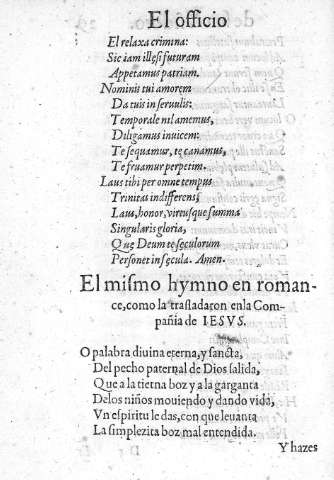 El officio
El relaxa crimina:
Sic iam illęsi futuram
Appetamus patriam.
Nominis tui amorem
Da tuis in seruulis:
Temporale nil amemus,
Diligamus inuicem:
Te sequamur, te canamus,
Te fruamur perpetim.
Laus tibi per omne tempus
Trinitas indifferens,
Laus, honor, virtusque summa
Singularis gloria,
Quę Deum te sęculorum
Personet in sęcula. Amen.
El mismo hymno en roman-
ce, como la trasladaron en la Com-
pañia de IESVS.
O palabra diuina eterna, y sancta,
Del pecho paternal de Dios salida,
Que a la tierna boz y a la garganta
Delos niños mouiendo y dando vida,
Vn espiritu le das, con que leuanta
La simplezita boz mal entendida.
Y hazes